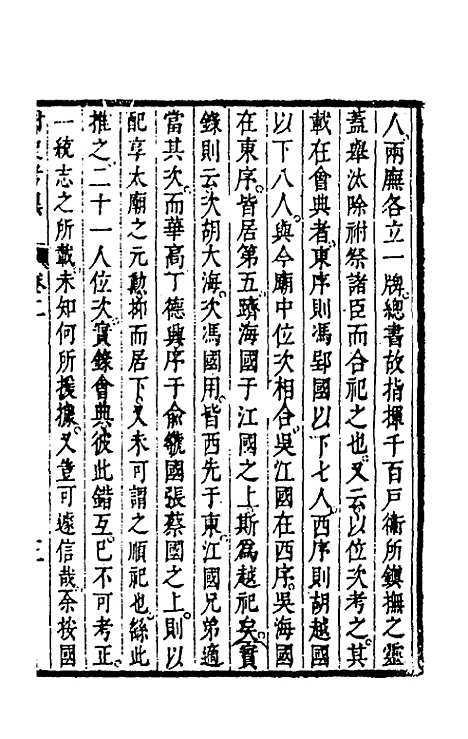 人兩廡各立一牌總書故指揮千百戶衛所鎮撫之靈
蓋舉汰除祔祭諸臣而合祀之也又云以位次考之其
載在會典者東序則馮郢國以下七人西序則胡越國
以下八人與今廟中位次相合吳江國在西序吳海國
在東序皆居第五躋海國于江國之上斯為越祀矣實
錄則云次胡大海次馮國用皆西先于東江國兄弟適
當其次而華高丁德興序于俞虢國張蔡國之上則以
配享太廟之元勳抑而居下又未可謂之順祀也繇此
推之二十一人位次實錄會典彼此錯互巳不可考正
一統志之所載未知何所援據又豈可遽信哉余按國
卷二
三